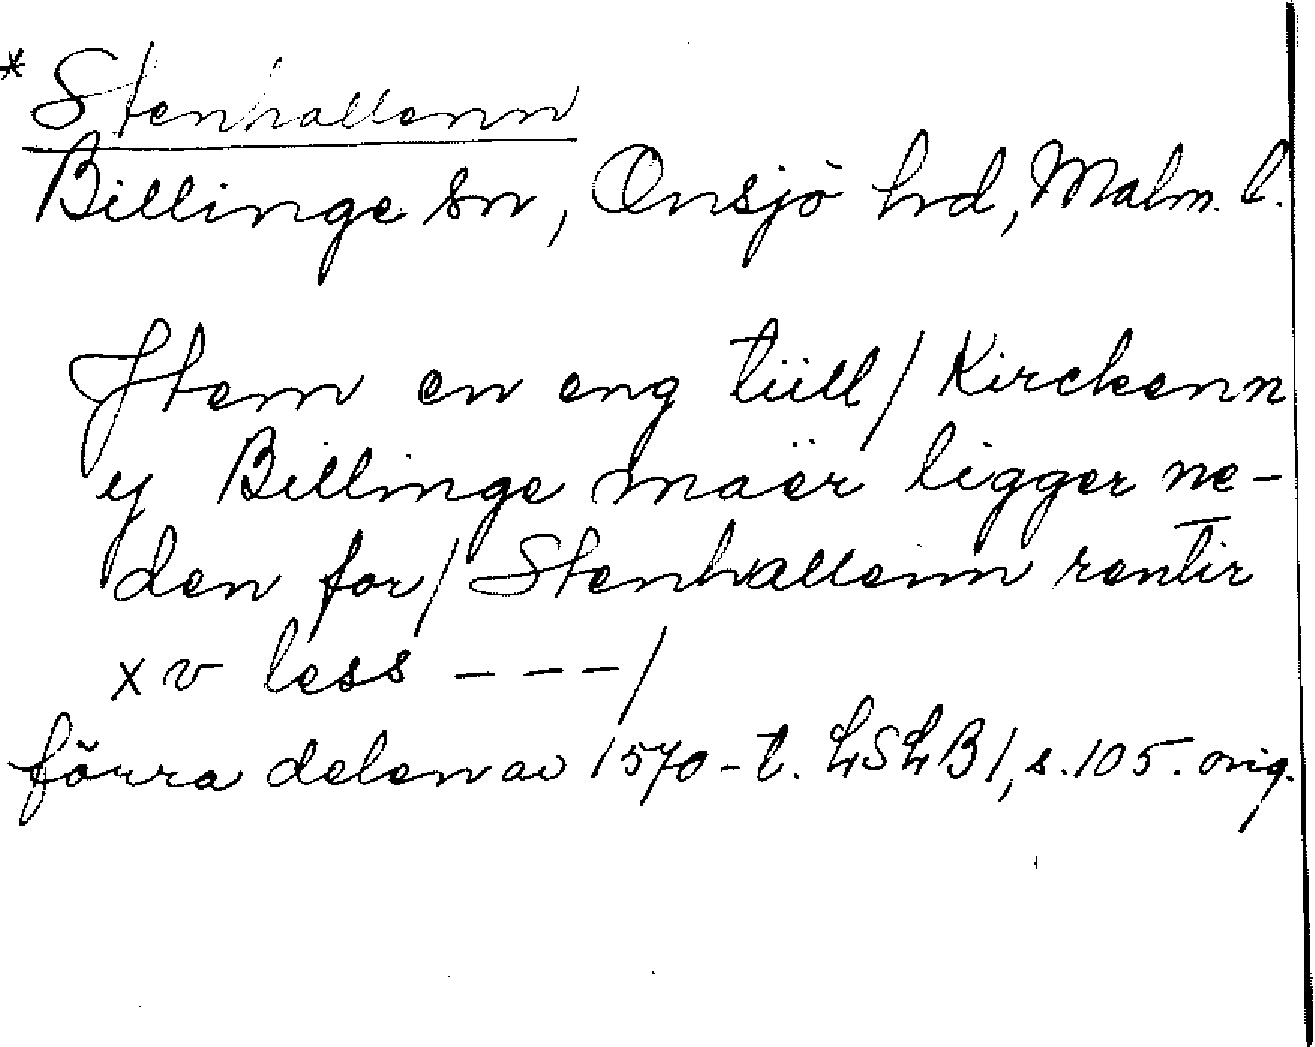 * Stenhallenn
Billinge sn, Onsjö hrd, Malm. l.
Jtem en eng tiill / Kirckenn
y Billinge maër ligger ne-
den for / Stenhallenn rentir
xv less - - - /
förra delen av 1570-t. LSLB 1, s. 105. orig.